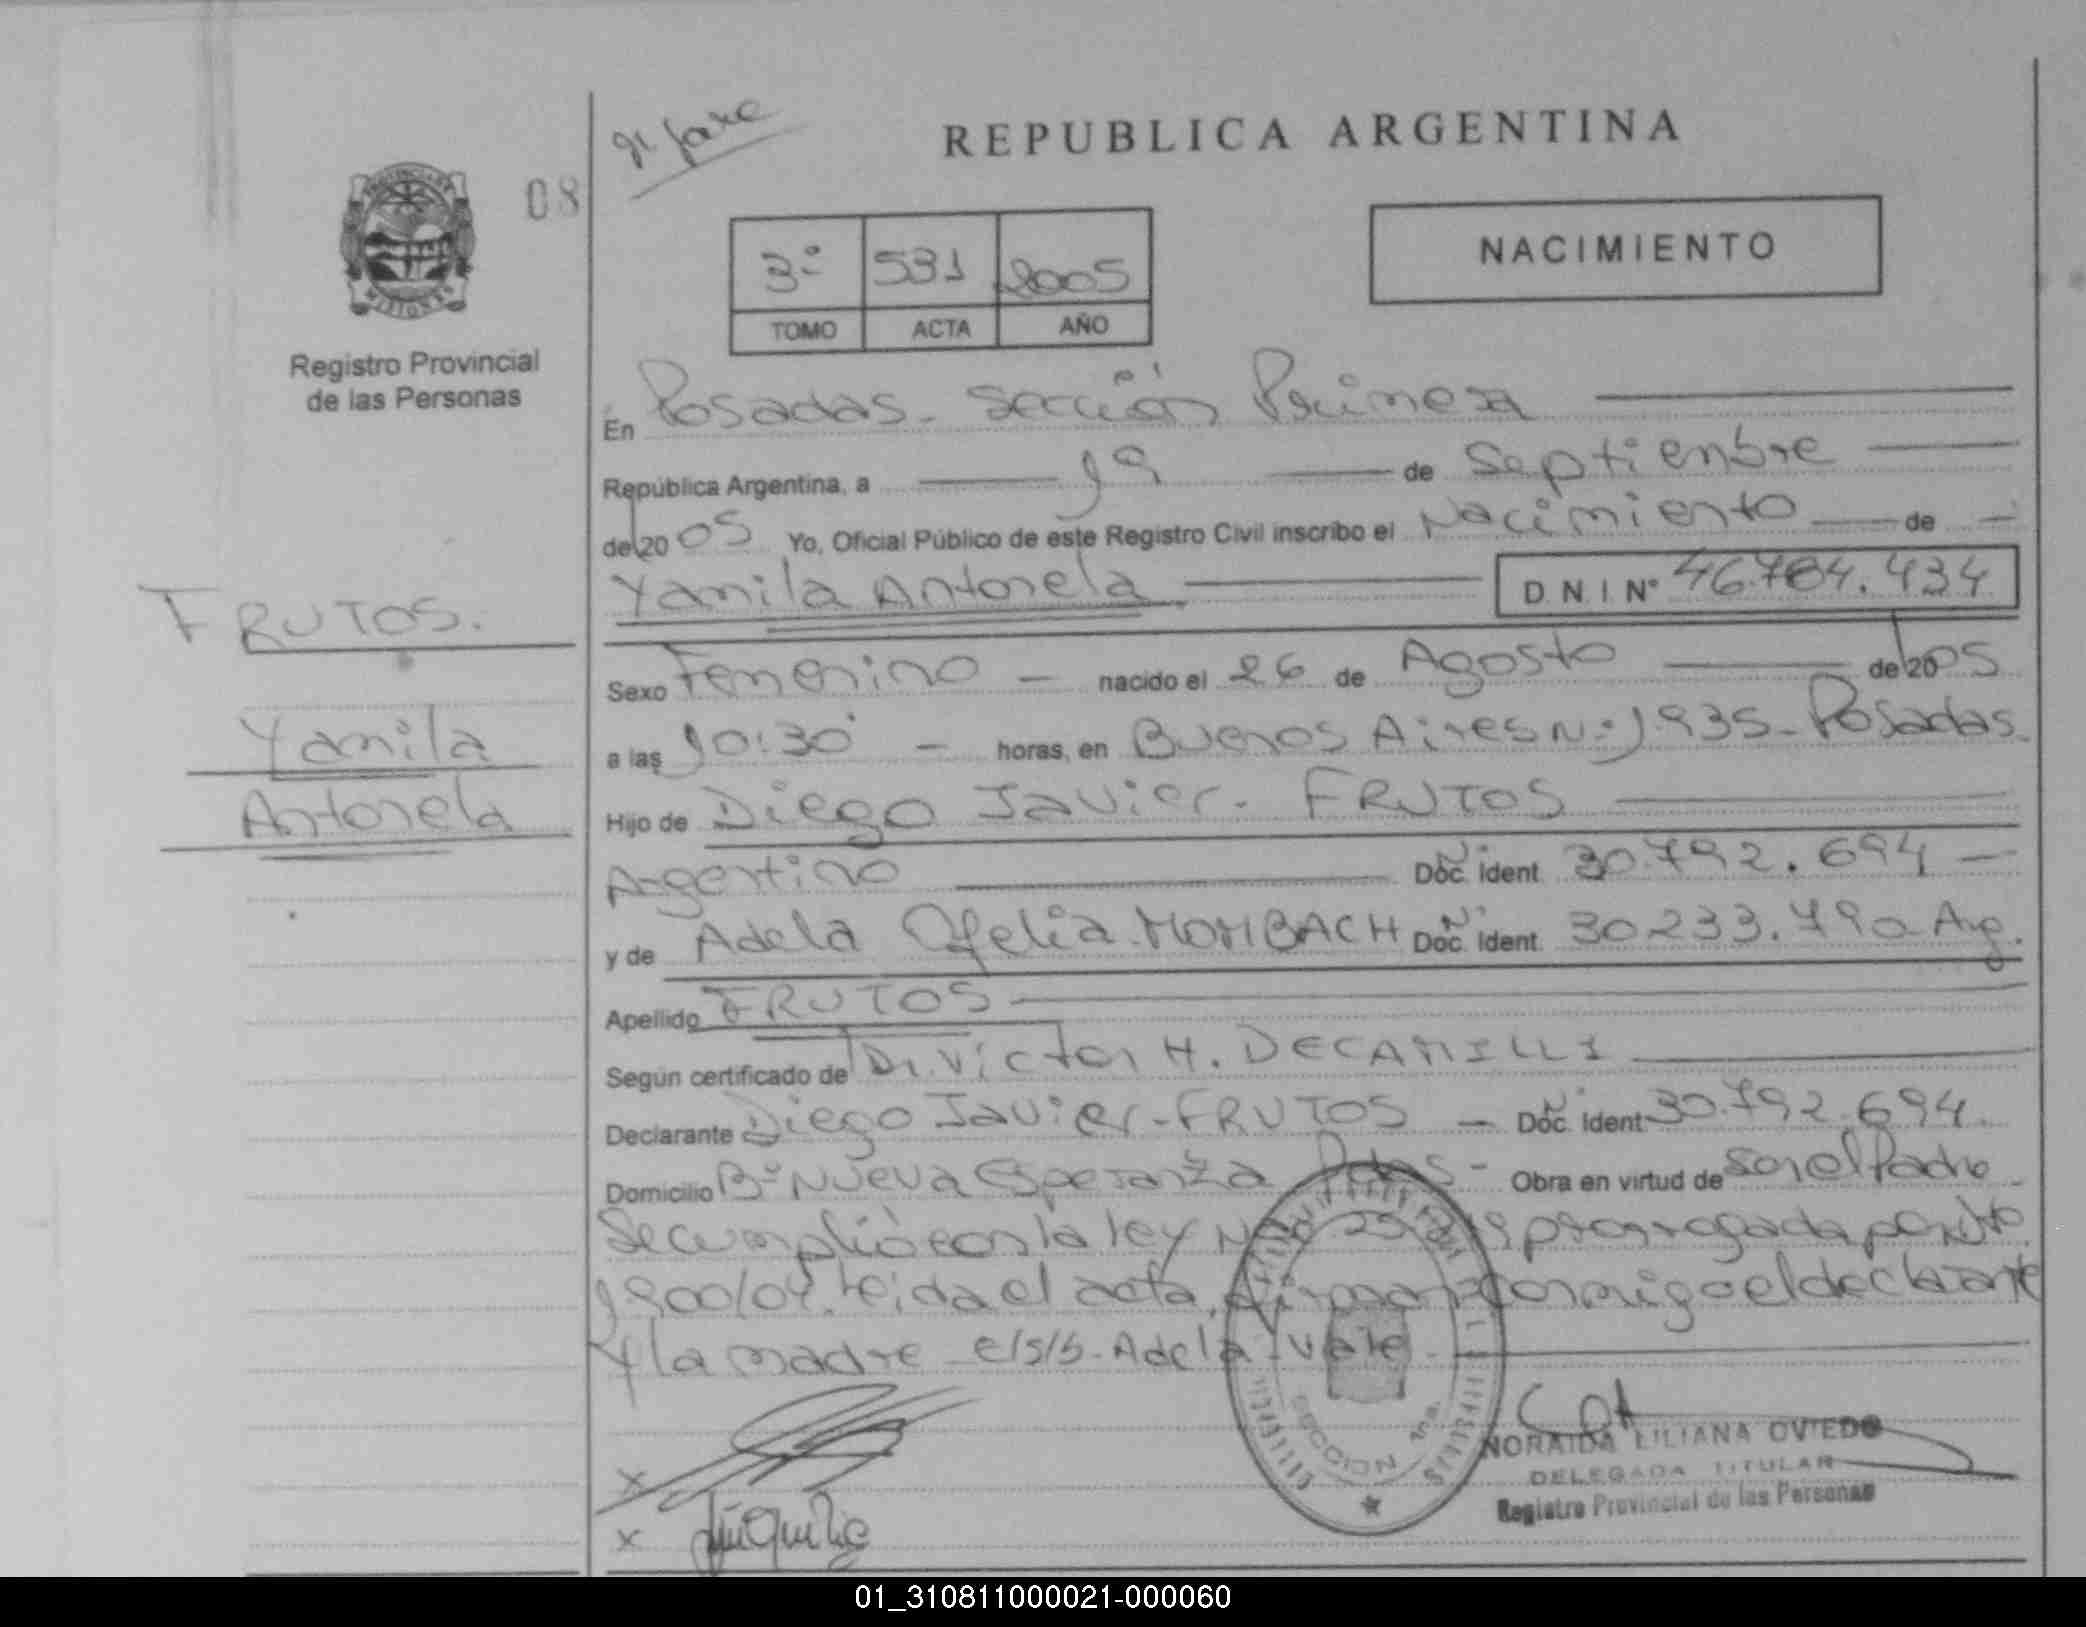 REPUBLICA ARGENTINA
PROVINCIA DE
MISIONES
08
Registro Provincial
de las Personas
NACIMIENTO
3º 531 2005
TOMO ACTA AÑO
En Posadas - Sección Primera
República Argentina, a 19 de Septiembre
del 2005 Yo, Oficial Público de este Registro Civil inscribo el Nacimiento de
Yamila Antonela D.N.I. Nº 46.784.434
FRUTOS.
Yamila
Antonela
Sexo Femenino - nacido el 26 de Agosto del 2005
a las 10:30 - horas, en Buenos Aires Nº 1.935 - Posadas
Hijo de Diego Javier - FRUTOS
Argentino Nº Doc. Ident. 30.792.694
y de Adela Ofelia MOMBACH Nº Doc. Ident. 30.233.790 Arg.
Apellido FRUTOS
Según certificado de Dr. Victor H. DECAMILLI
Declarante Diego Javier - FRUTOS - Nº Doc. Ident. 30.792.694.
Domicilio Bº Nueva Esperanza Pdas - Obra en virtud de Ser el Padre
Se cumplió con la ley prorrogada por Dto
1900/04. Leida el acta, firman conmigo el declarante
y la madre e/s/b - Adela - Vale
SECCION 1ra.
NORAIDA LILIANA OVIEDO
DELEGADA TITULAR
Registro Provincial de las Personas
01_310811000021-000060